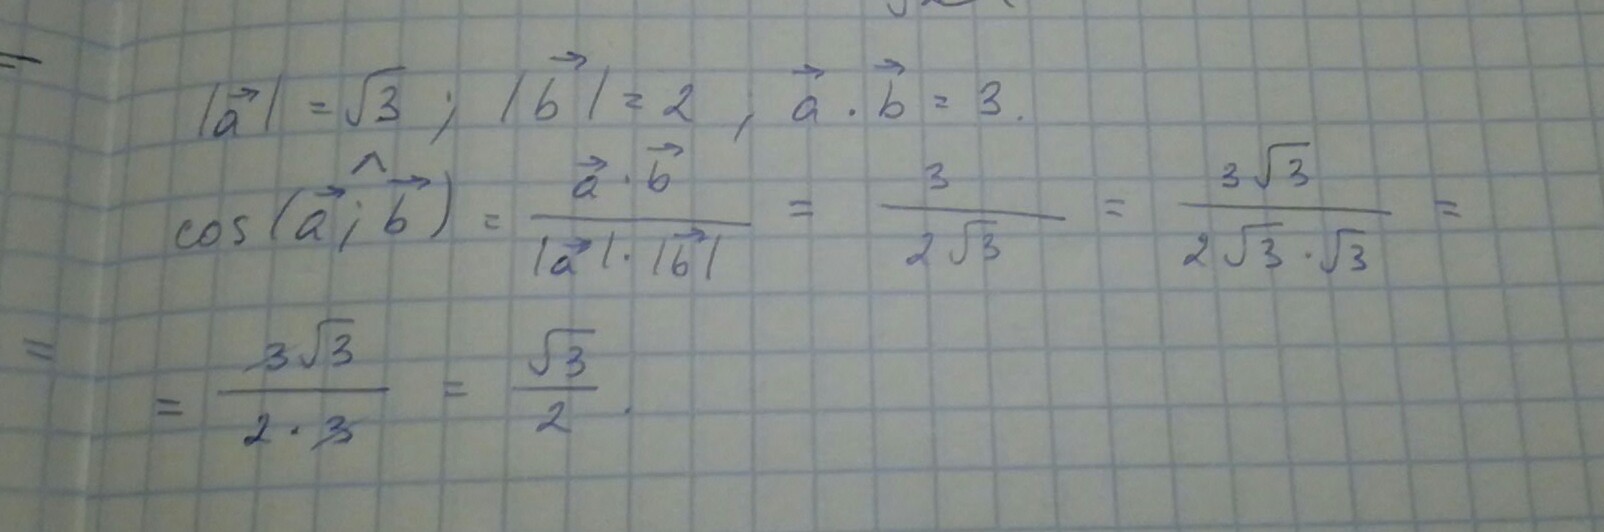 |a⃗| = √3 ; |b⃗| = 2 , a⃗ · b⃗ = 3.
cos(a⃗ ;^ b⃗) = (a⃗ · b⃗)/(|a⃗| · |b⃗|) = 3/(2√3) = (3√3)/(2√3 · √3) =
= (3√3)/(2 · 3) = √3/2 .